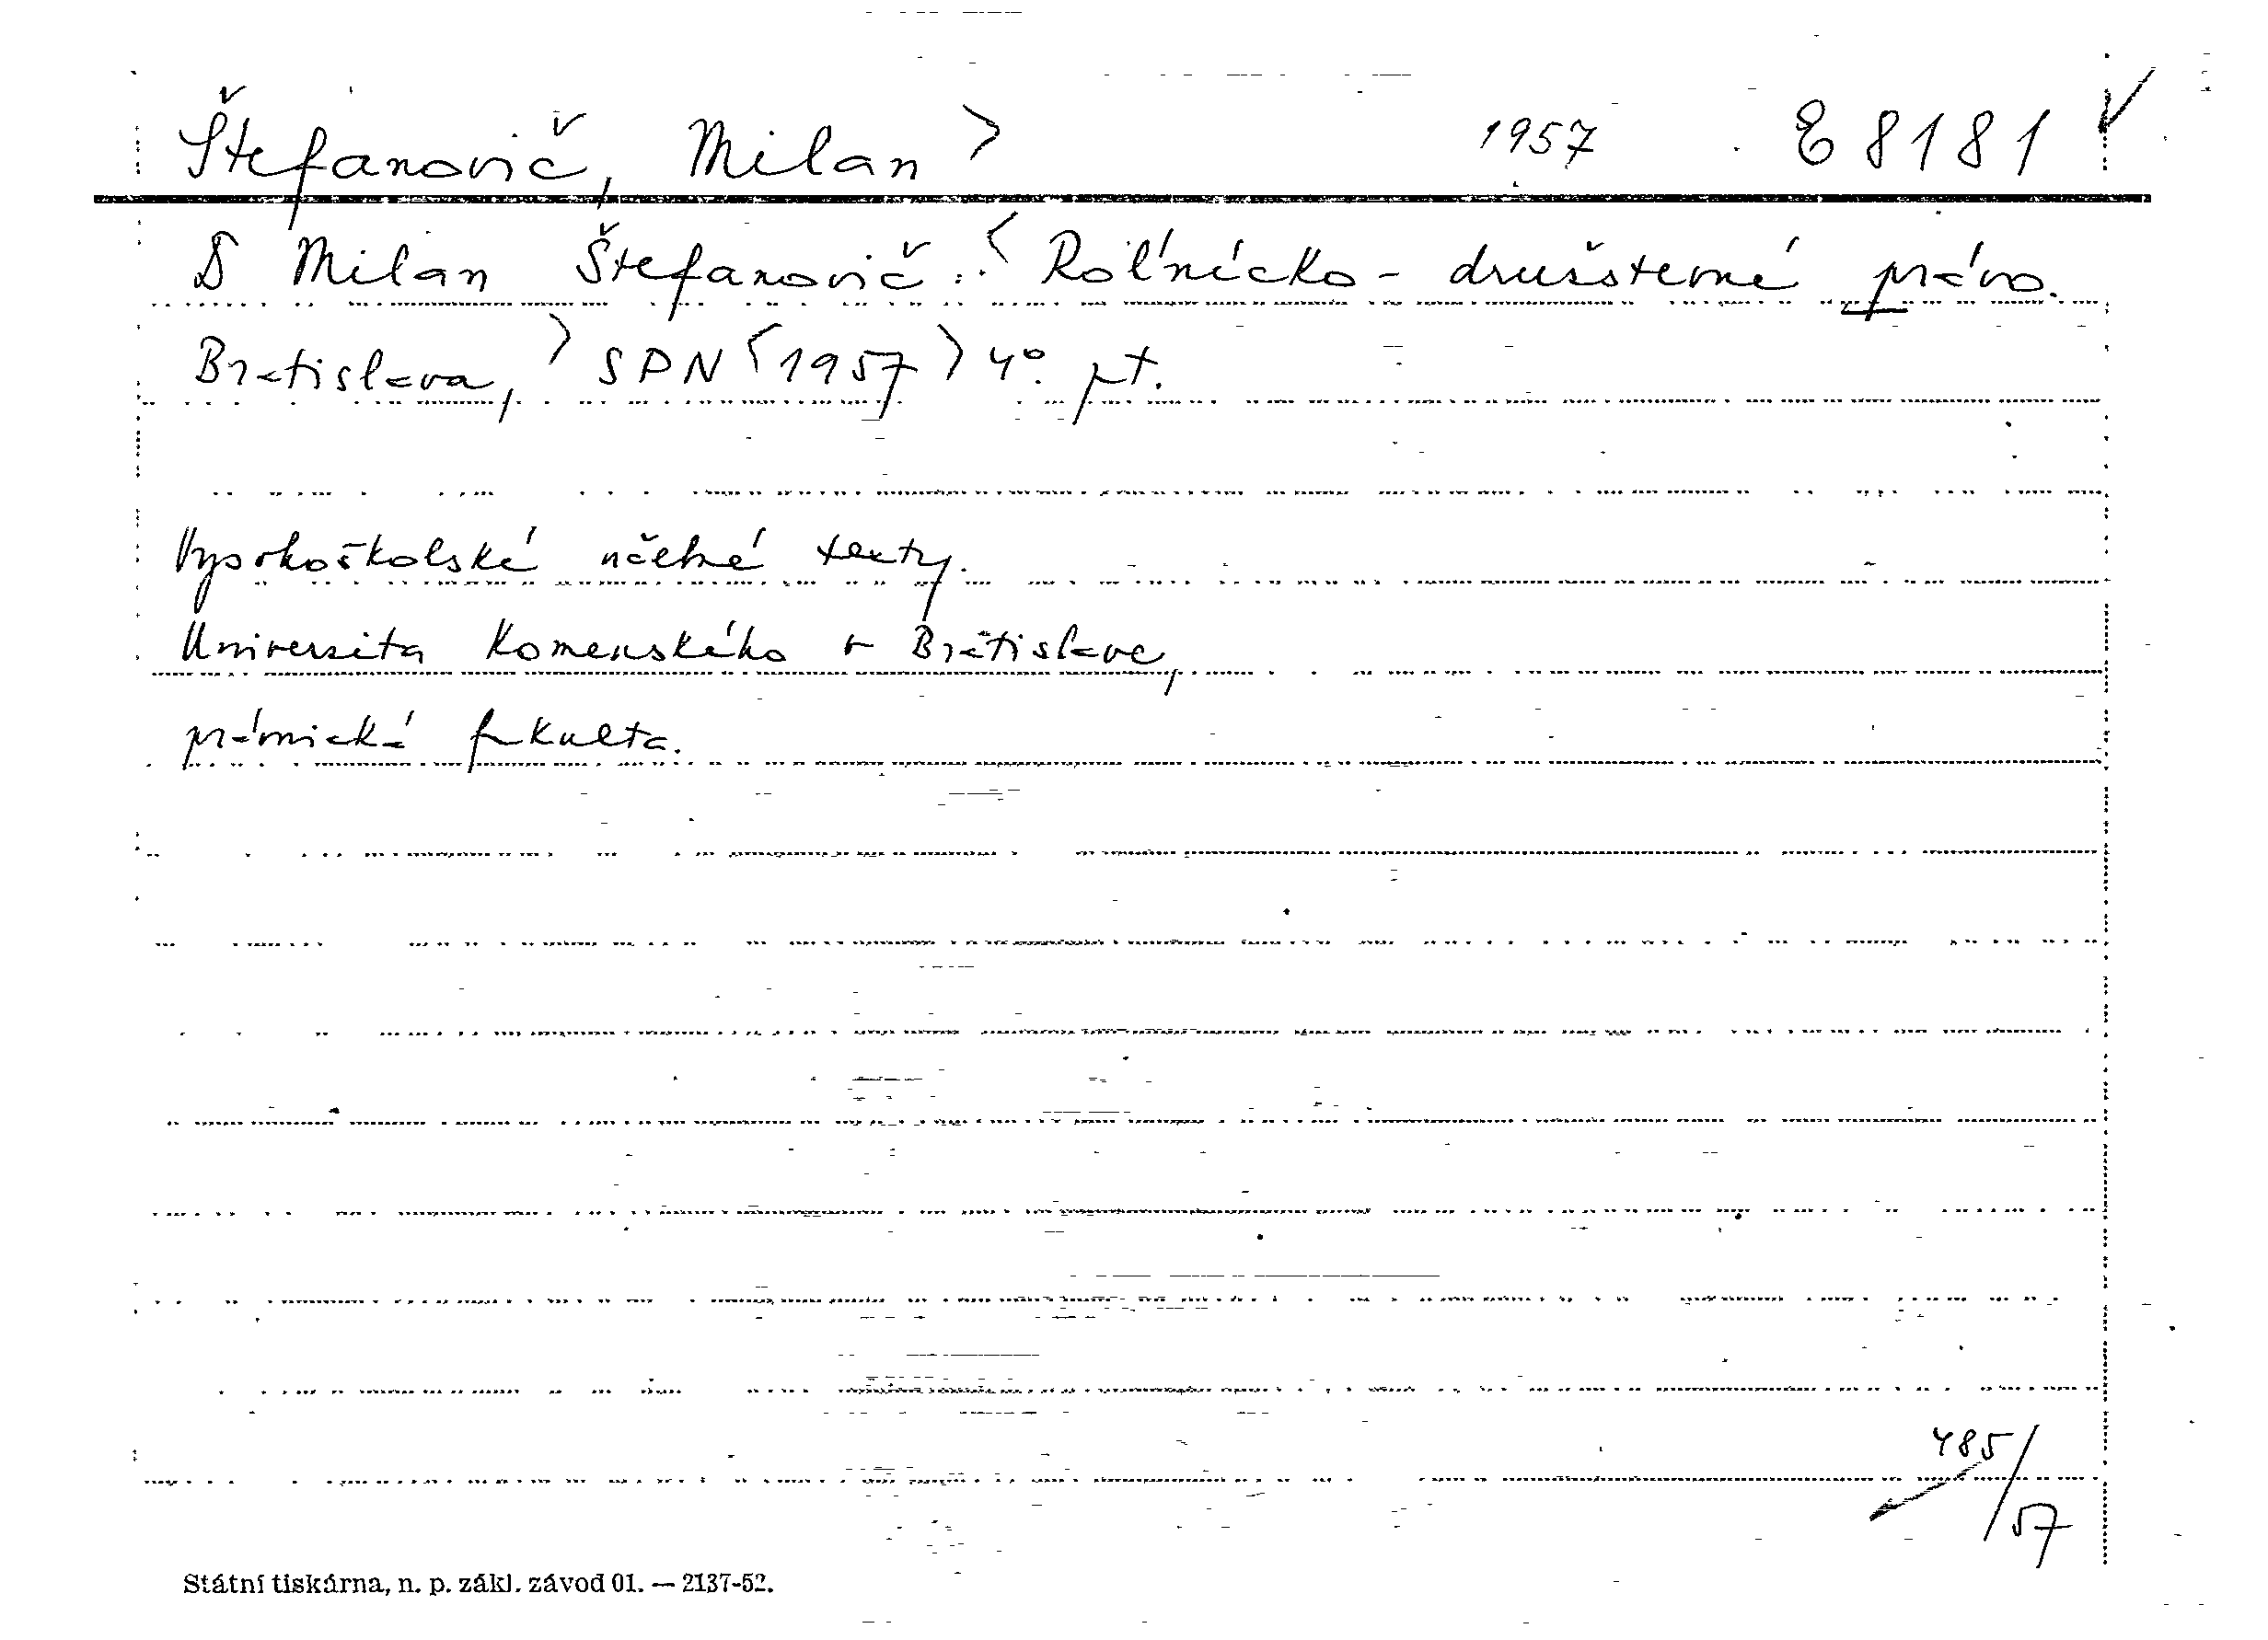 Štefanovič, Milan > 1957 E 8181 ✓
Milan Štefanovič: < Roľnícko-družstevné právo.
Bratislava, > SPN < 1957 > 4°.
Vysokoškolské učebné texty.
Universita Komenského v Bratislave,
právnická fakulta.
485/57
Státní tiskárna, n. p. zákl. závod 01. — 2137-52.